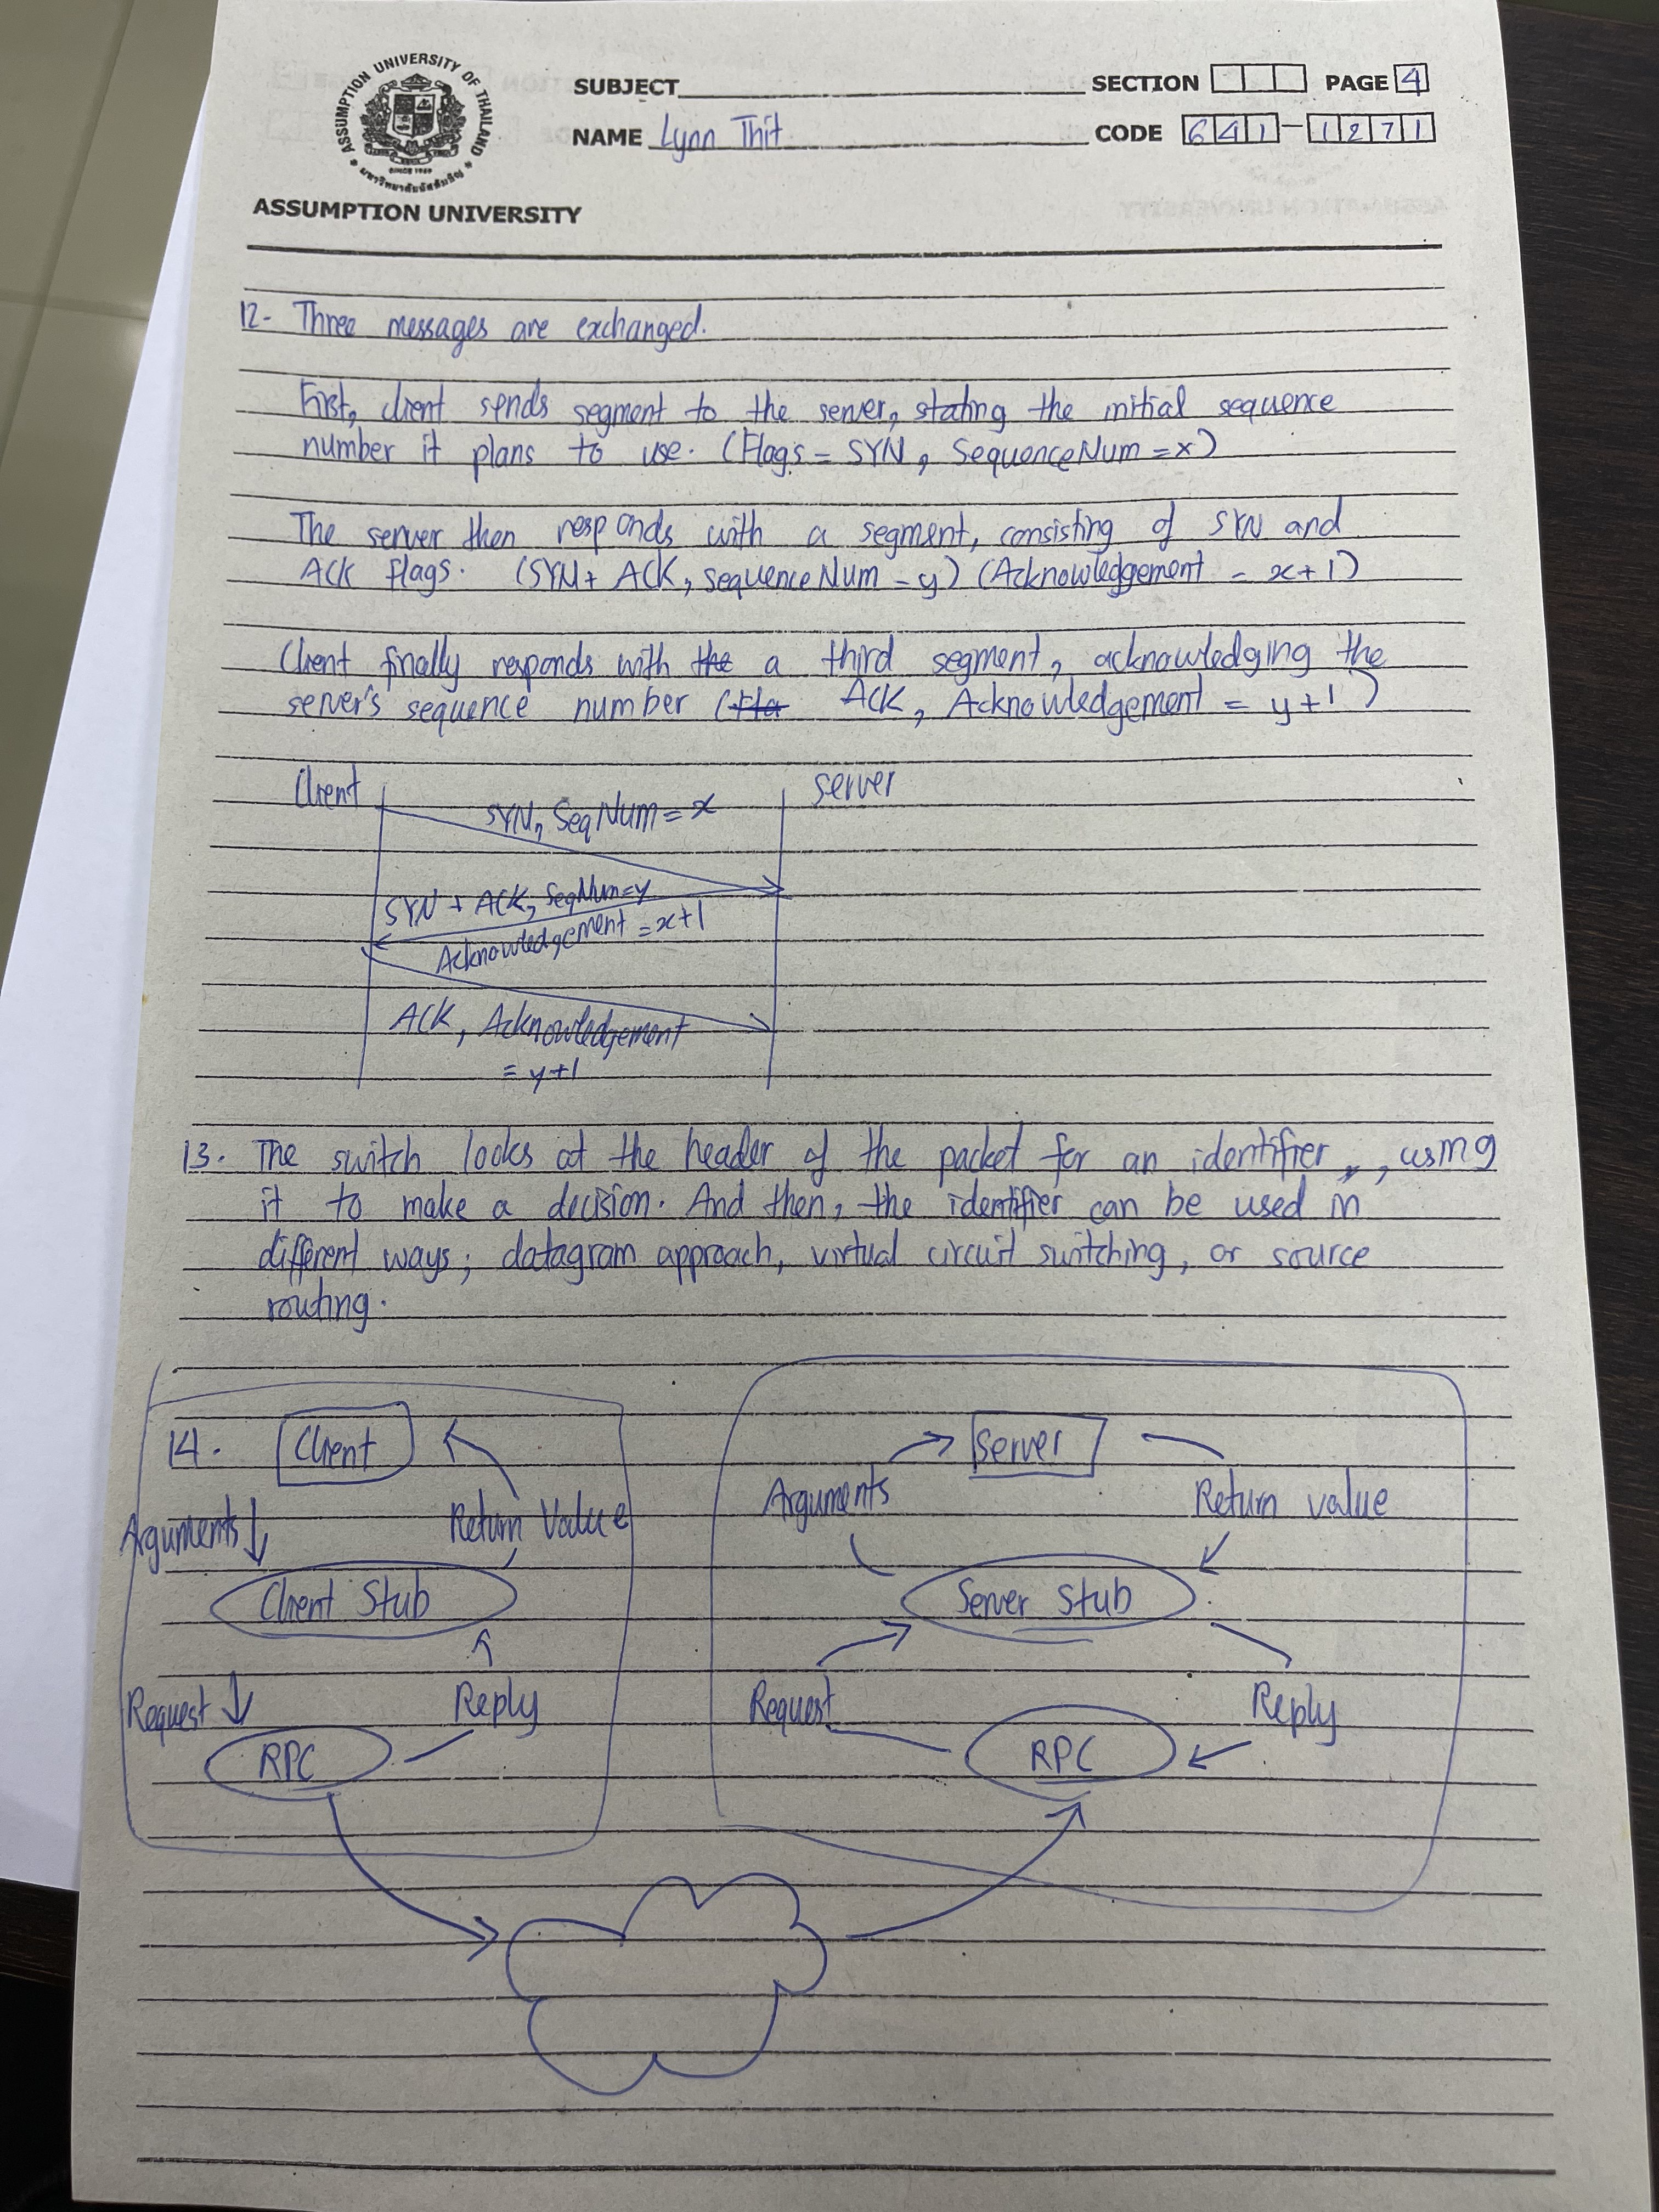 ASSUMPTION UNIVERSITY OF THAILAND
SINCE 1969
มหาวิทยาลัยอัสสัมชัญ
ASSUMPTION UNIVERSITY
SUBJECT
SECTION PAGE 4
NAME Lynn Thit
CODE 641-1271
12- Three messages are exchanged.
First, client sends segment to the server, stating the initial sequence
number it plans to use. (Flags = SYN, SequenceNum = x)
The server then responds with a segment, consisting of SYN and
ACK flags. (SYN + ACK, sequenceNum = y) (Acknowledgement = x+1)
Client finally responds with the a third segment, acknowledging the
server's sequence number (Fla ACK, Acknowledgement = y+1)
Client
server
SYN, SeqNum = x
SYN + ACK, SeqNum=y
Acknowledgement = x+1
ACK, Acknowledgement
= y+1
13. The switch looks at the header of the packet for an identifier, using
it to make a decision. And then, the identifier can be used in
different ways; datagram approach, virtual circuit switching, or source
routing.
14. Client
Arguments
Return Value
Client Stub
Request
Reply
RPC
Server
Arguments
Return value
Server Stub
Request
Reply
RPC